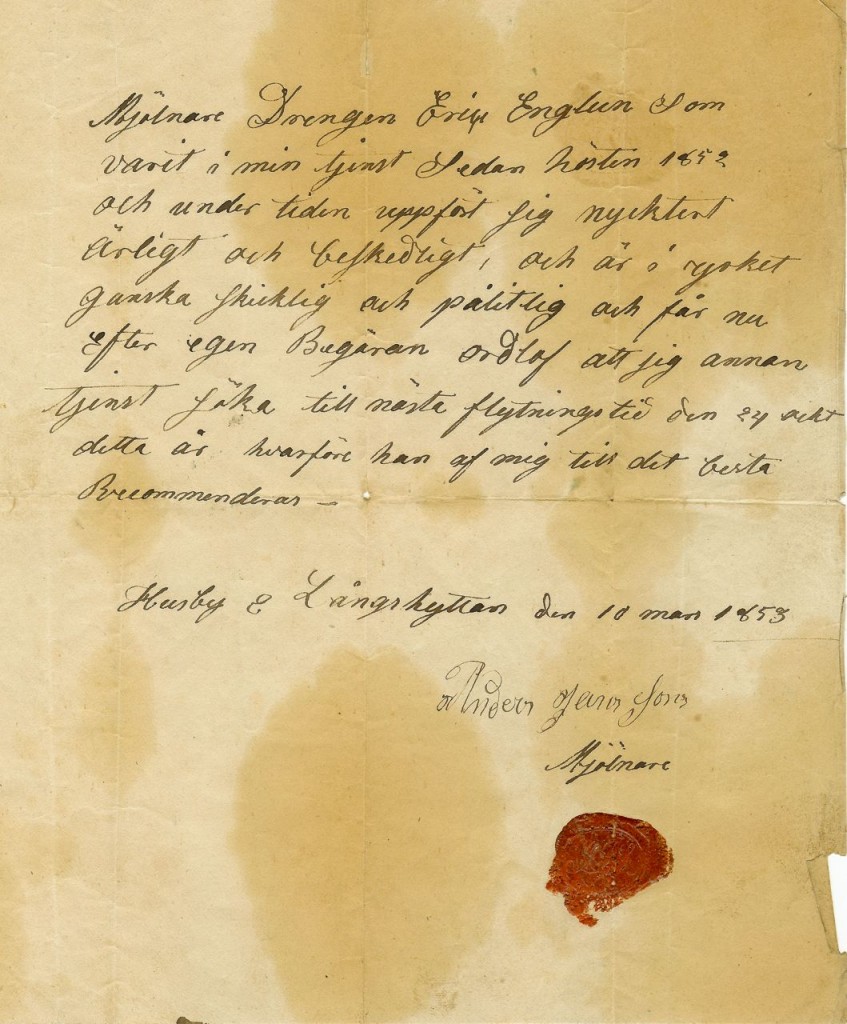 Mjölnare Drengen Eric Englun Som
varit i min tjenst Sedan hösten 1852
och under tiden uppfört sig nycktert
ärligt och beskedligt, och är i yrket
ganska skicklig och pålitlig och får nu
efter egen Begäran ordlof att sig annan
tjenst söka till nästa flytningstid den 24 ockt
detta år hvarföre han af mig till det besta
Recommenderas —
Husby & Långshyttan den 10 mars 1853
Anders Jans Son
Mjölnare